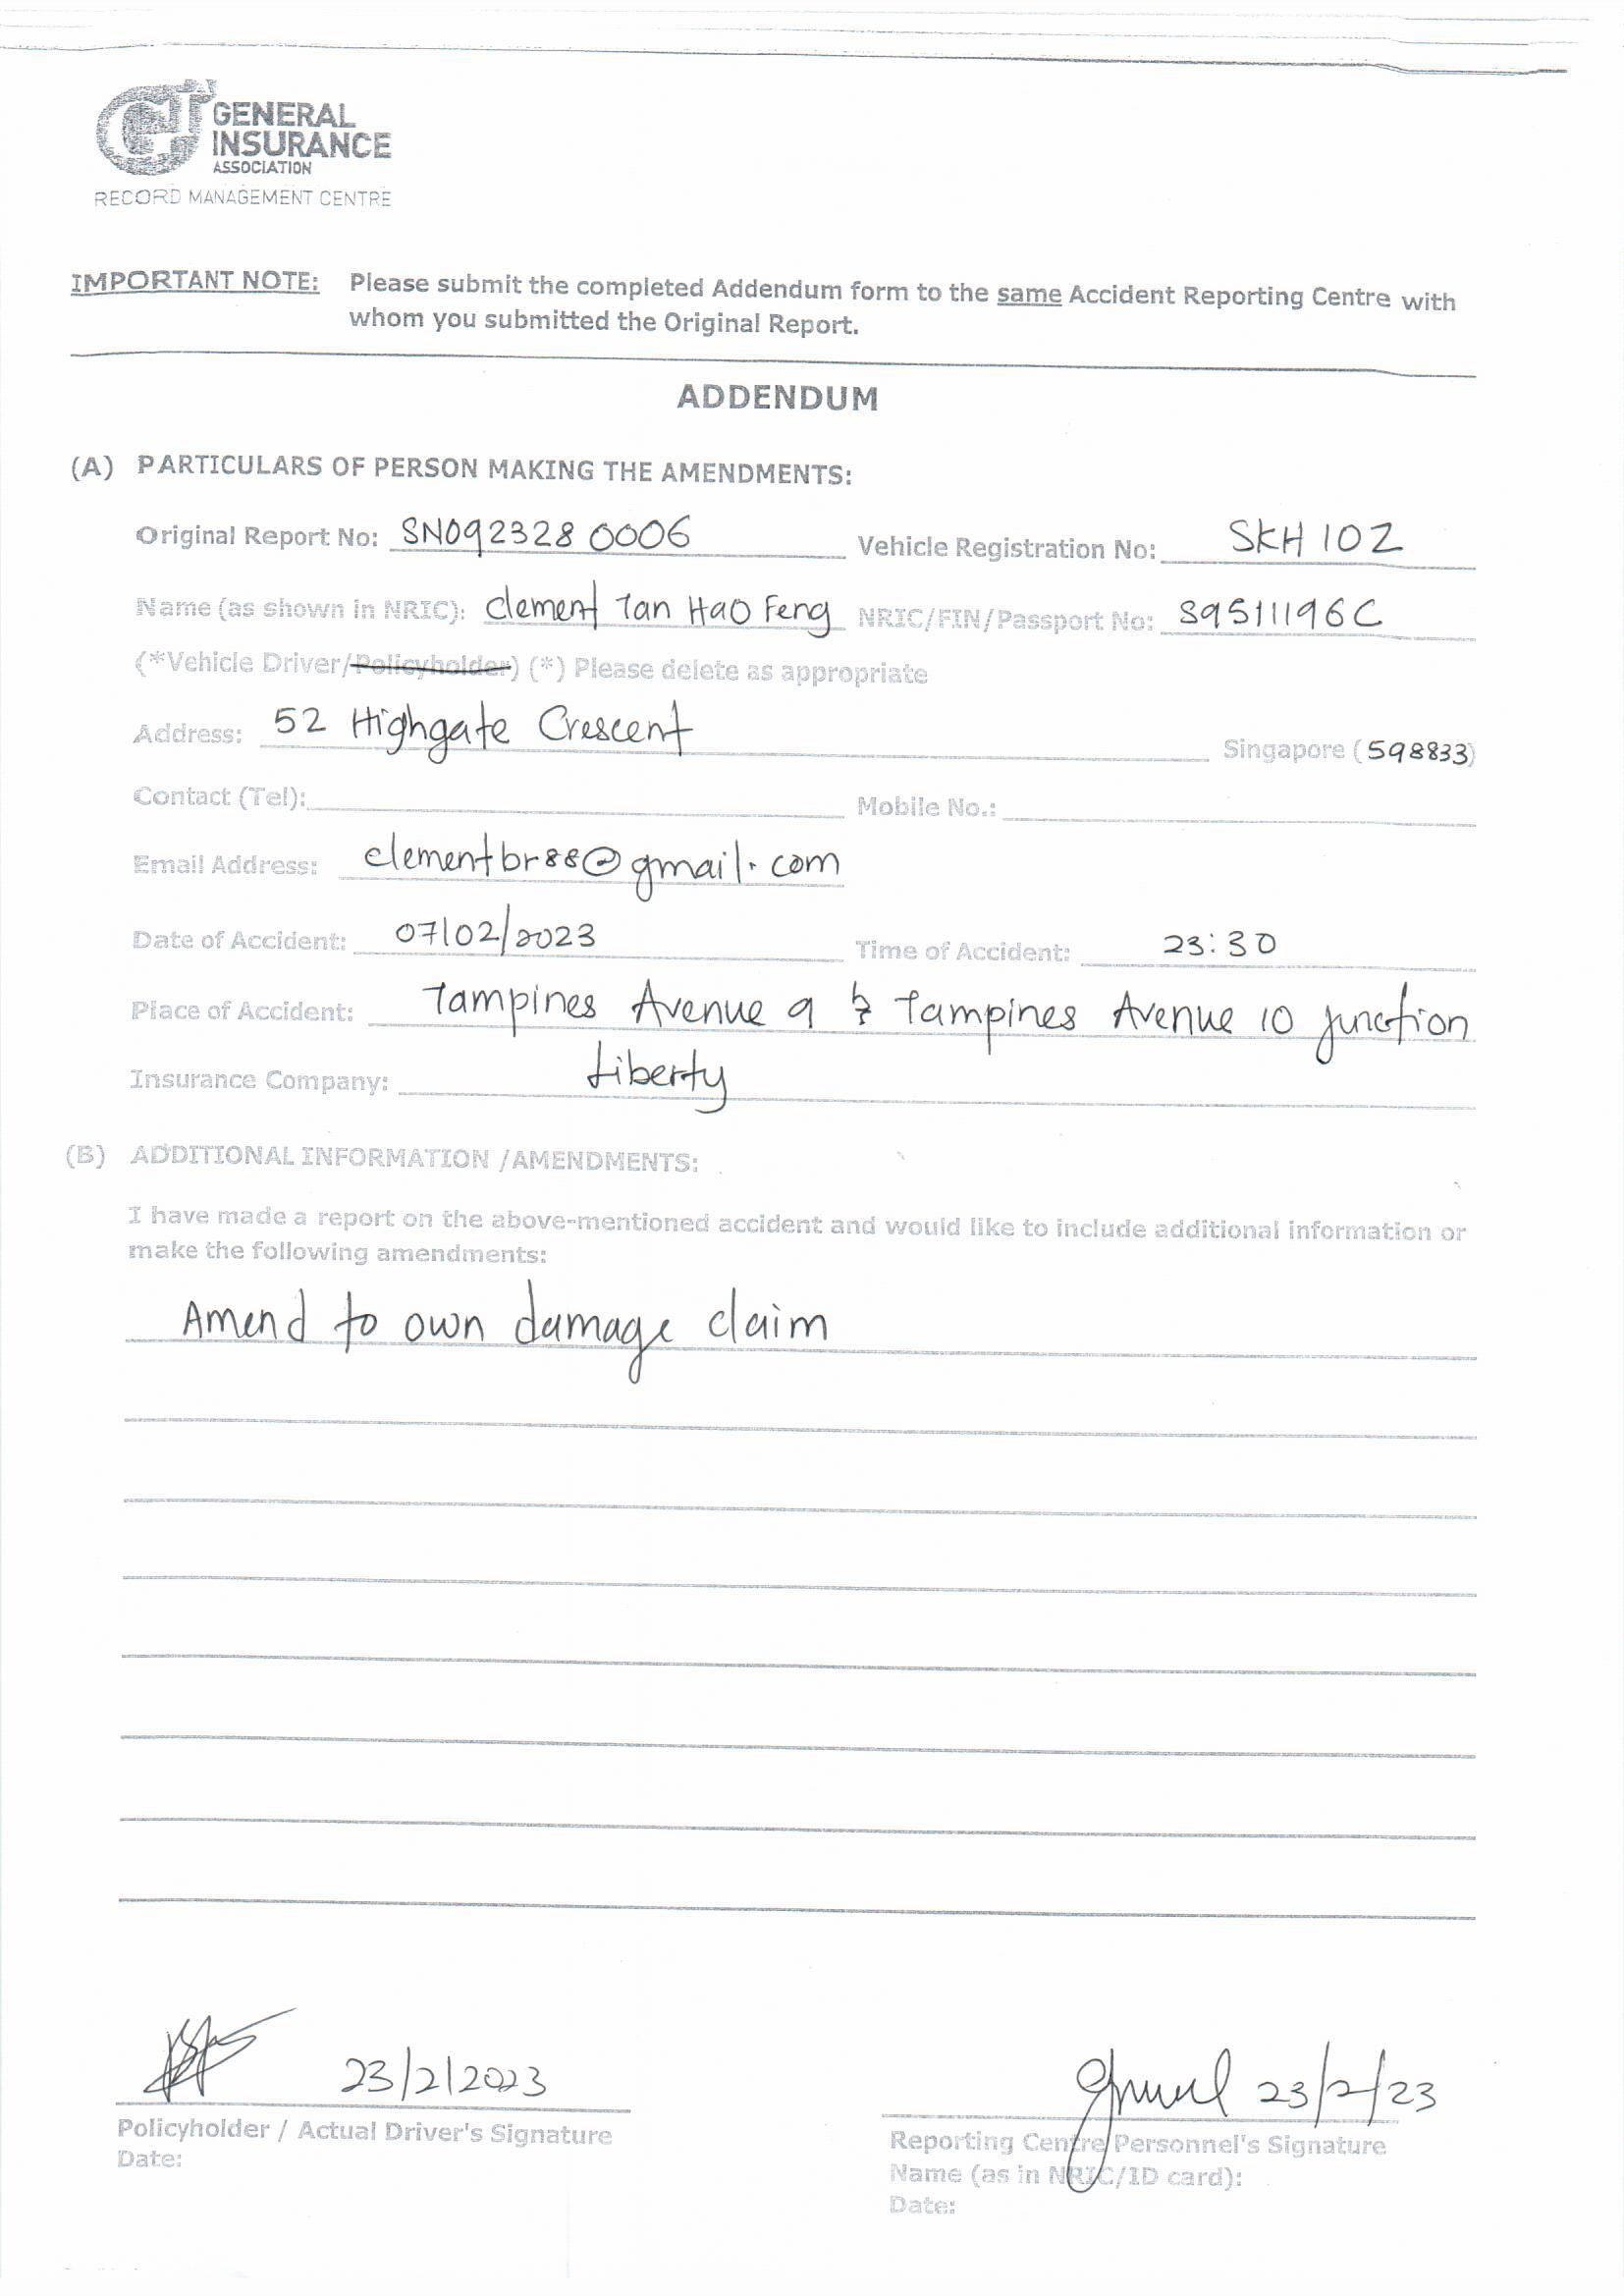 GENERAL
INSURANCE
ASSOCIATION
RECORD MANAGEMENT CENTRE
IMPORTANT NOTE: Please submit the completed Addendum form to the same Accident Reporting Centre with
whom you submitted the Original Report.
ADDENDUM
(A) PARTICULARS OF PERSON MAKING THE AMENDMENTS:
Original Report No: SN092328 0006 Vehicle Registration No: SKH 10Z
Name (as shown in NRIC): Clement Tan Hao Feng NRIC/FIN/Passport No: S9511196C
(*Vehicle Driver/Policyholder) (*) Please delete as appropriate
Address: 52 Highgate Crescent Singapore (598833)
Contact (Tel): Mobile No.:
Email Address: clementbr88@gmail.com
Date of Accident: 07/02/2023 Time of Accident: 23:30
Place of Accident: Tampines Avenue 9 & Tampines Avenue 10 junction
Insurance Company: Liberty
(B) ADDITIONAL INFORMATION /AMENDMENTS:
I have made a report on the above-mentioned accident and would like to include additional information or
make the following amendments:
Amend to own damage claim
23/2/2023 23/2/23
Policyholder / Actual Driver's Signature Reporting Centre Personnel's Signature
Date: Name (as in NRIC/ID card):
Date: